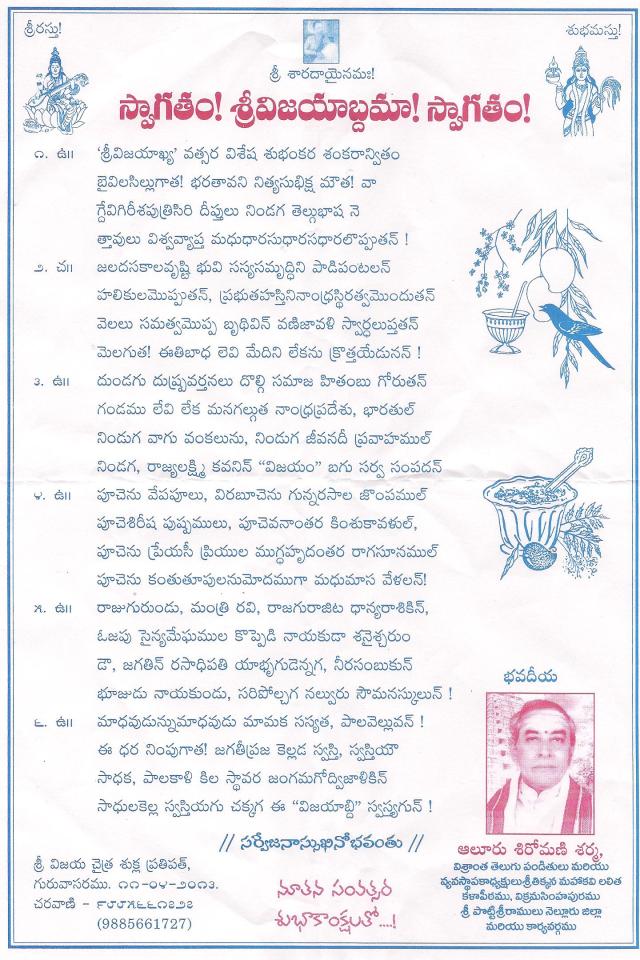 శ్రీరస్తు!
శుభమస్తు!
శ్రీ శారదాయైనమః!
స్వాగతం! శ్రీవిజయాబ్దమా! స్వాగతం!
౧. ఉ॥ 'శ్రీవిజయాఖ్య' వత్సర విశేష శుభంకర శంకరాన్వితం
బైవిలసిల్లుగాత! భరతావని నిత్యసుభిక్ష మౌత! వా
గ్దేవిగిరీశపుత్రిసిరి దీప్తులు నిండగ తెల్గుభాష నె
త్తావులు విశ్వవ్యాప్త మధుధారసుధారసధారలొప్పుతన్ !
౨. చ॥ జలదసకాలవృష్టి భువి సస్యసమృద్ధిని పాడిపంటలన్
హలికులమొప్పుతన్, ప్రభుతహస్తినినాంధ్రస్థిరత్వమొందుతన్
వెలలు సమత్వమొప్ప బృథివిన్ వణిజావళి స్వార్థలుప్తతన్
మెలగుత! ఈతిబాధ లెవి మేదిని లేకను క్రొత్తయేడునన్ !
౩. ఉ॥ దుండగు దుష్ప్రవర్తనలు దొల్గి సమాజ హితంబు గోరుతన్
గండము లేవి లేక మనగల్గుత నాంధ్రప్రదేశు, భారతుల్
నిండుగ వాగు వంకలును, నిండుగ జీవనదీ ప్రవాహముల్
నిండగ, రాజ్యలక్ష్మి కవనిన్ "విజయం" బగు సర్వ సంపదన్
౪. ఉ॥ పూచెను వేపపూలు, విరబూచెను గున్నరసాల జొంపముల్
పూచెశిరీష పుష్పములు, పూచెవనాంతర కింశుకావళుల్,
పూచెను ప్రేయసీ ప్రియుల ముగ్ధహృదంతర రాగసూనముల్
పూచెను కంతుతూపులనుమోదముగా మధుమాస వేళలన్!
౫. ఉ॥ రాజుగురుండు, మంత్రి రవి, రాజగురాజిట ధాన్యరాశికిన్,
ఓజపు సైన్యమేఘముల కొప్పెడి నాయకుడా శనైశ్చరుం
డౌ, జగతిన్ రసాధిపతి యాభృగుడెన్నగ, నీరసంబుకున్
భూజుడు నాయకుండు, సరిపోల్చగ నల్వురు సౌమనస్కులున్ !
౬. ఉ॥ మాధవుడున్నుమాధవుడు మామక సస్యత, పాలవెల్లువన్ !
ఈ ధర నింపుగాత! జగతీప్రజ కెల్లడ స్వస్తి, స్వస్తియౌ
సాధక, పాలకాళి కిల స్థావర జంగమగోద్విజాళికిన్
సాధులకెల్ల స్వస్తియగు చక్కగ ఈ "విజయాబ్ది" స్వస్త్యగున్ !
// సర్వేజనాస్సుఖినోభవంతు //
శ్రీ విజయ చైత్ర శుక్ల ప్రతిపత్,
గురువాసరము. ౧౧-౦౪-౨౦౧౩.
చరవాణి - ౯౮౮౫౬౬౧౭౨౭
(9885661727)
నూతన సంవత్సర
శుభాకాంక్షలతో....!
భవదీయ
ఆలూరు శిరోమణి శర్మ,
విశ్రాంత తెలుగు పండితులు మరియు
వ్యవస్థాపకాధ్యక్షులుశ్రీతిక్కన మహాకవి లలిత
కళాపీఠము, విక్రమసింహపురము
శ్రీ పొట్టిశ్రీరాములు నెల్లూరు జిల్లా
మరియు కార్యవర్గము